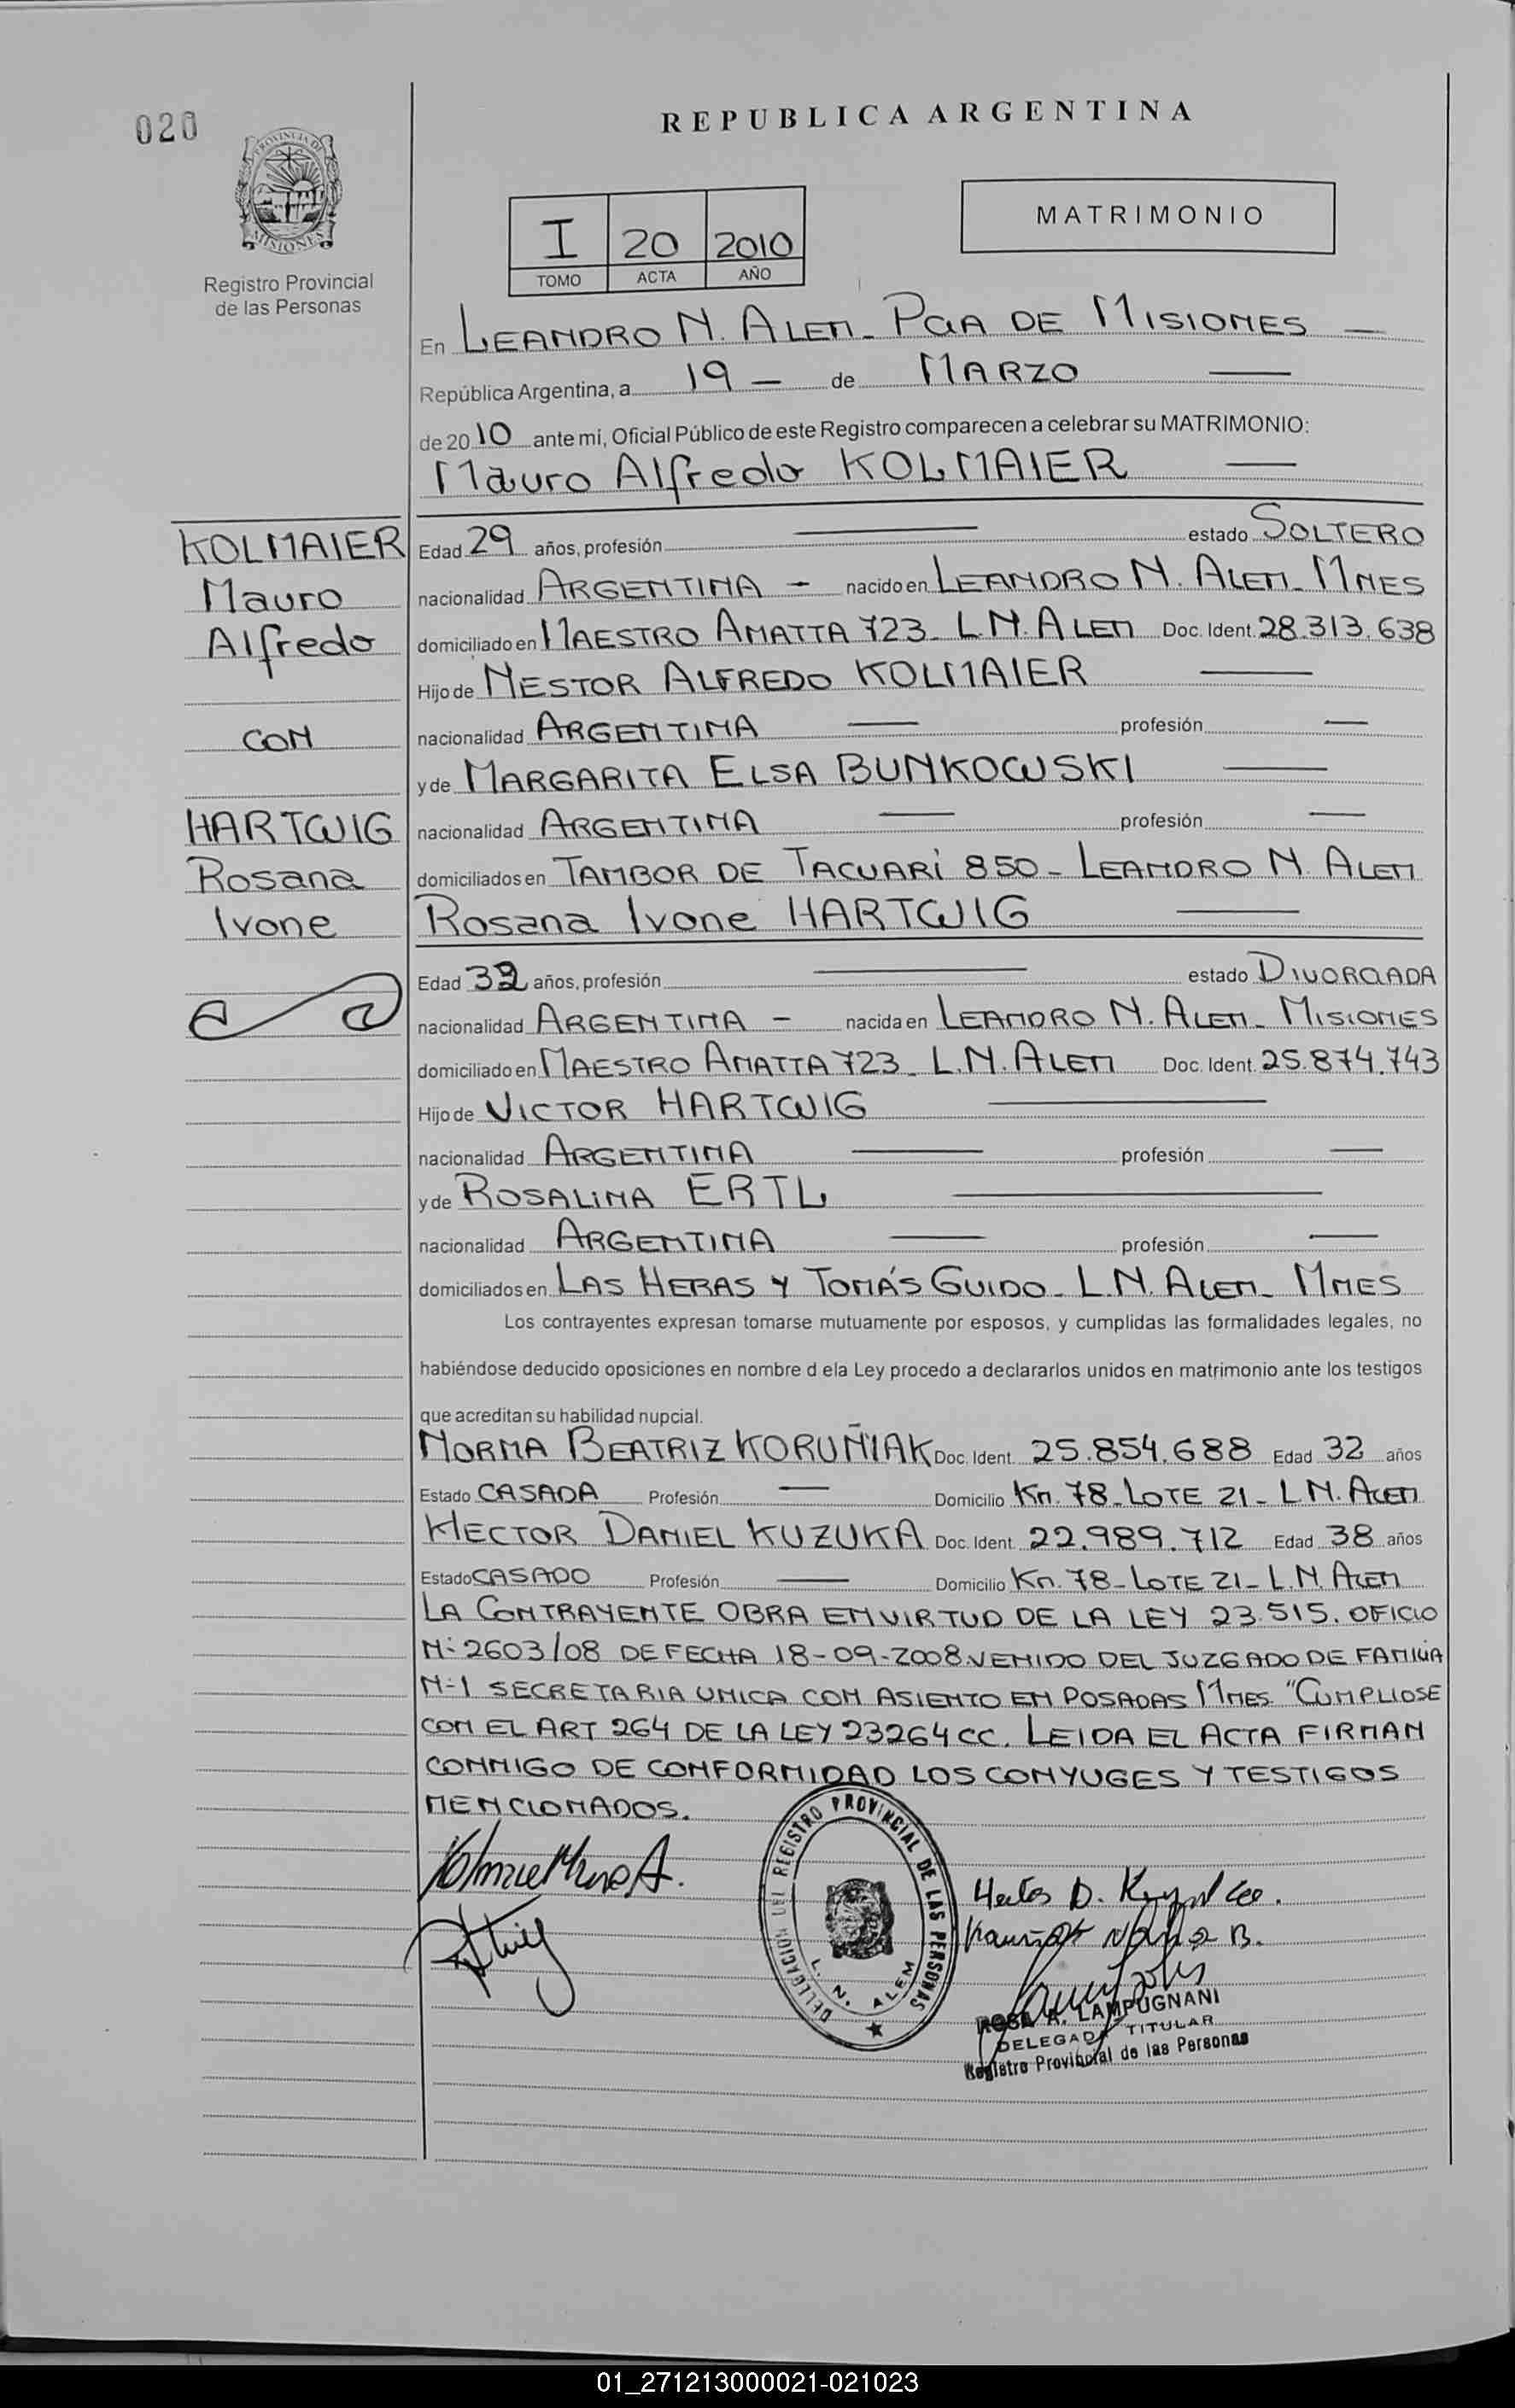 020
REPUBLICA ARGENTINA
PROVINCIA DE MISIONES
Registro Provincial
de las Personas
I 20 2010
TOMO ACTA AÑO
MATRIMONIO
En LEANDRO N. ALEM - PCIA DE MISIONES —
República Argentina, a 19 — de MARZO —
de 2010 ante mí, Oficial Público de este Registro comparecen a celebrar su MATRIMONIO:
Mauro Alfredo KOLMAIER —
KOLMAIER
Mauro
Alfredo
CON
HARTWIG
Rosana
Ivone
Edad 29 años, profesión — estado SOLTERO
nacionalidad ARGENTINA - nacido en LEANDRO N. ALEM - MNES
domiciliado en MAESTRO AMATTA 723 - L.N. ALEM Doc. Ident. 28.313.638
Hijo de NESTOR ALFREDO KOLMAIER —
nacionalidad ARGENTINA — profesión —
y de MARGARITA ELSA BUNKOWSKI —
nacionalidad ARGENTINA — profesión —
domiciliados en TAMBOR DE TACUARÍ 850 - LEANDRO N. ALEM
Rosana Ivone HARTWIG —
Edad 32 años, profesión — estado DIVORCIADA
nacionalidad ARGENTINA - nacida en LEANDRO N. ALEM - MISIONES
domiciliado en MAESTRO AMATTA 723 - L.N. ALEM Doc. Ident. 25.874.743
Hijo de VICTOR HARTWIG —
nacionalidad ARGENTINA — profesión —
y de ROSALINA ERTL —
nacionalidad ARGENTINA — profesión —
domiciliados en LAS HERAS Y TOMÁS GUIDO - L.N. ALEM - MNES
Los contrayentes expresan tomarse mutuamente por esposos, y cumplidas las formalidades legales, no
habiéndose deducido oposiciones en nombre d ela Ley procedo a declararlos unidos en matrimonio ante los testigos
que acreditan su habilidad nupcial.
NORMA BEATRIZ KORUÑIAK Doc. Ident. 25.854.688 Edad 32 años
Estado CASADA Profesión — Domicilio Km. 78 - LOTE 21 - L.N. ALEM
HECTOR DANIEL KUZUKA Doc. Ident. 22.989.712 Edad 38 años
Estado CASADO Profesión — Domicilio Km. 78 - LOTE 21 - L.N. ALEM
LA CONTRAYENTE OBRA EN VIRTUD DE LA LEY 23.515. OFICIO
N:2603/08 DE FECHA 18-09-2008. VENIDO DEL JUZGADO DE FAMILIA
N:1 SECRETARIA UNICA CON ASIENTO EN POSADAS MNES. "CUMPLIOSE
CON EL ART 264 DE LA LEY 23264 CC. LEIDA EL ACTA FIRMAN
CONMIGO DE CONFORMIDAD LOS CONYUGES Y TESTIGOS
MENCIONADOS.
DELEGACION DEL REGISTRO PROVINCIAL DE LAS PERSONAS
L. N. ALEM
ROSA A. LAMPUGNANI
DELEGADA TITULAR
Registro Provincial de las Personas
01_271213000021-021023